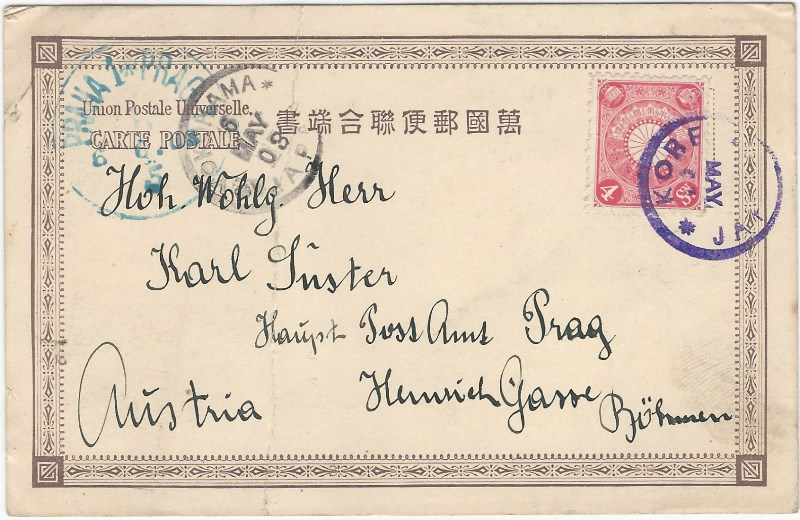 萬國郵便聯合端書
Union Postale Universelle.
CARTE POSTALE
PRAHA 1 * PRAG
YOKOHAMA * JAPAN
6 MAY 03
4
KOBE * JAPAN
MAY
Hoh Wohlg. Herr
Karl Süster
Haupt Post Amt Prag
Heinrich Gasse
Austria
Böhmen